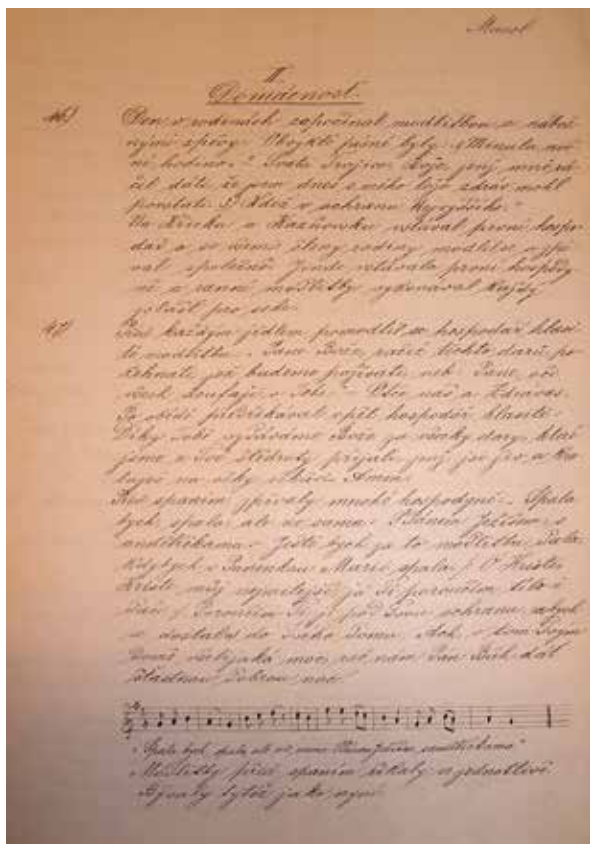 II
Domácnost.
46) Den v rodinách započínal modlitbou a nábož-
nými zpěvy. Obvyklé písně byly: „Minula noč-
ní hodina." Svatá Trojice Bože, jenž mně rá-
čil dáti, že jsem dnes z mého lože zdráv mohl
povstati. Kdož v ochranu
Na a vstával první hospo-
dář a se všemi členy rodiny modlil se a zpí-
val společně. Jinde vstávala první hospody-
ně a ranní modlitby vykonával každý
pro sebe.
47) Před každým jídlem pomodlil se hospodář hlasi-
tě modlitbu: Pane Bože, račiž těchto darů po-
žehnati, jež budeme požívati neb: Pane, oči
všech doufají v Tebe. – Otče náš a Zdrávas.
Po obědě předříkával opět hospodář hlasitě:
Díky Tobě vzdáváme Bože za všecky dary, které
jsme z Tvé štědroty přijali jenž jsi živ a kra-
luješ na věky věkův Amen.
Před spaním zpívaly mnohé hospodyně: Spala
bych, spala, ale ne sama. S Pánem Ježíšem, s
andělíčkama. Ještě bych já tu modlitbu
kdybych s Panenkou Marií spala. O Kriste,
Kriste můj nejsvětější, já Ti poroučím tělo i
duši. Poroučím Ti ji pod Tvou ochranu, abych
se dostala do Tvého domu. Ach, v tom Tvým
domě všelijaká moc, rač nám Pan Bůh dát
šťastnou dobrou noc.
„Spala bych, spala, ale ne sama. S Pánem Ježíšem, s andělíčkama."
Modlitby před spaním říkaly a jednotlivé
Bývaly tytéž jako nyní.